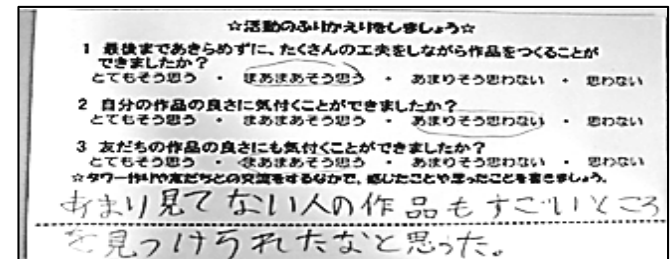 ☆活動のふりかえりをしましょう☆
1 最後まであきらめずに、たくさんの工夫をしながら作品をつくることが
できましたか?
とてもそう思う ・ まあまあそう思う ・ あまりそう思わない ・ 思わない
2 自分の作品の良さに気付くことができましたか?
とてもそう思う ・ まあまあそう思う ・ あまりそう思わない ・ 思わない
3 友だちの作品の良さにも気付くことができましたか?
とてもそう思う ・ まあまあそう思う ・ あまりそう思わない ・ 思わない
☆タワー作りや友だちとの交流をするなかで、感じたことや思ったことを書きましょう。
あまり見てない人の作品もすごいところ
を見つけられたなと思った。